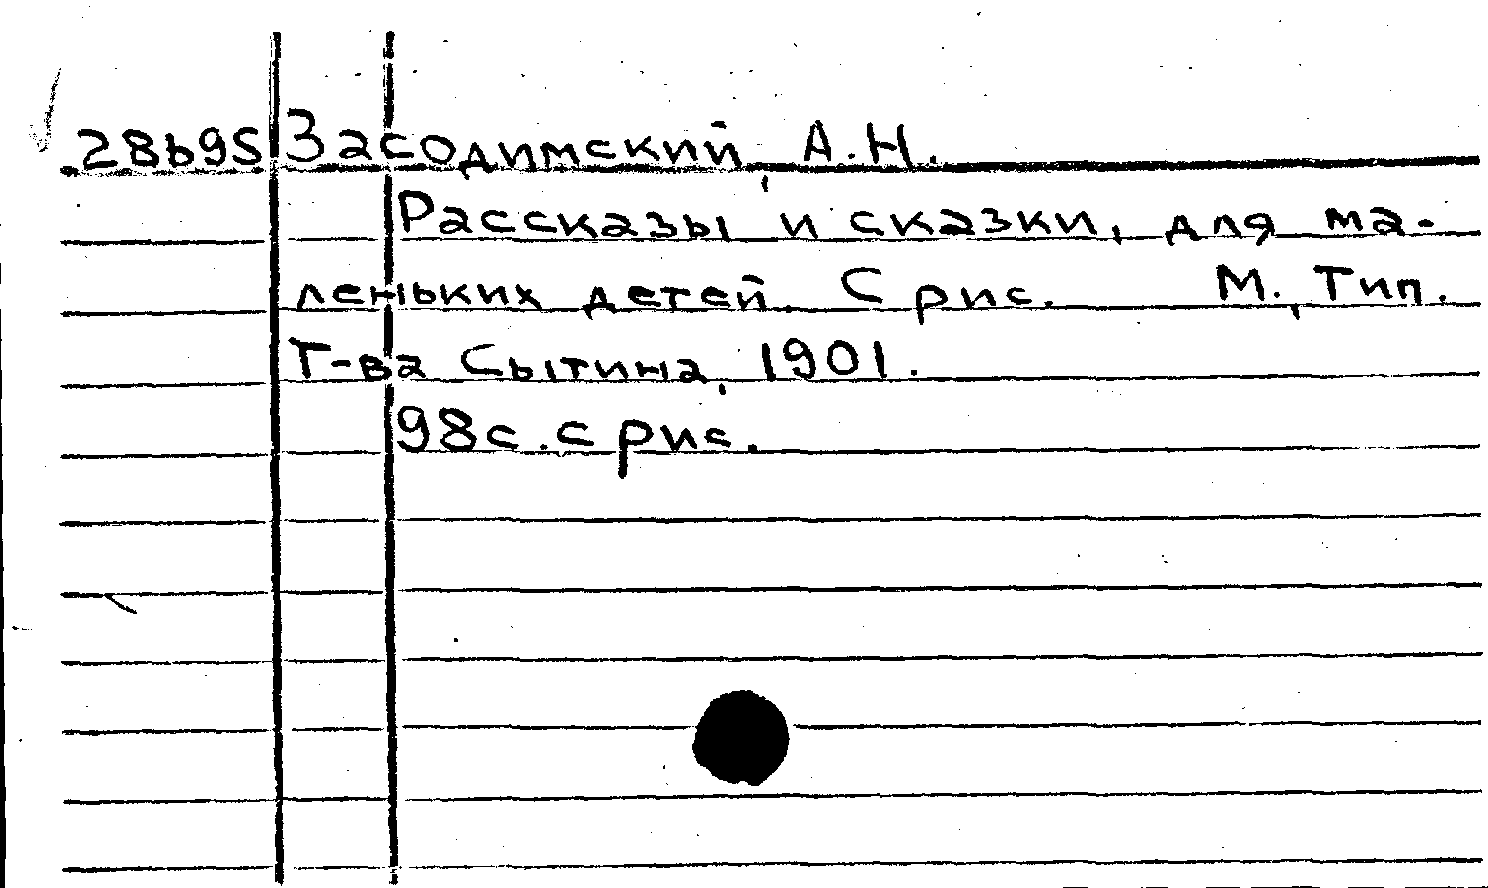 28b95 Засодимский, А.Н.
Рассказы и сказки, для ма-
леньких детей. С рис. М., Тип.
Т-ва Сытина, 1901.
98с. с рис.